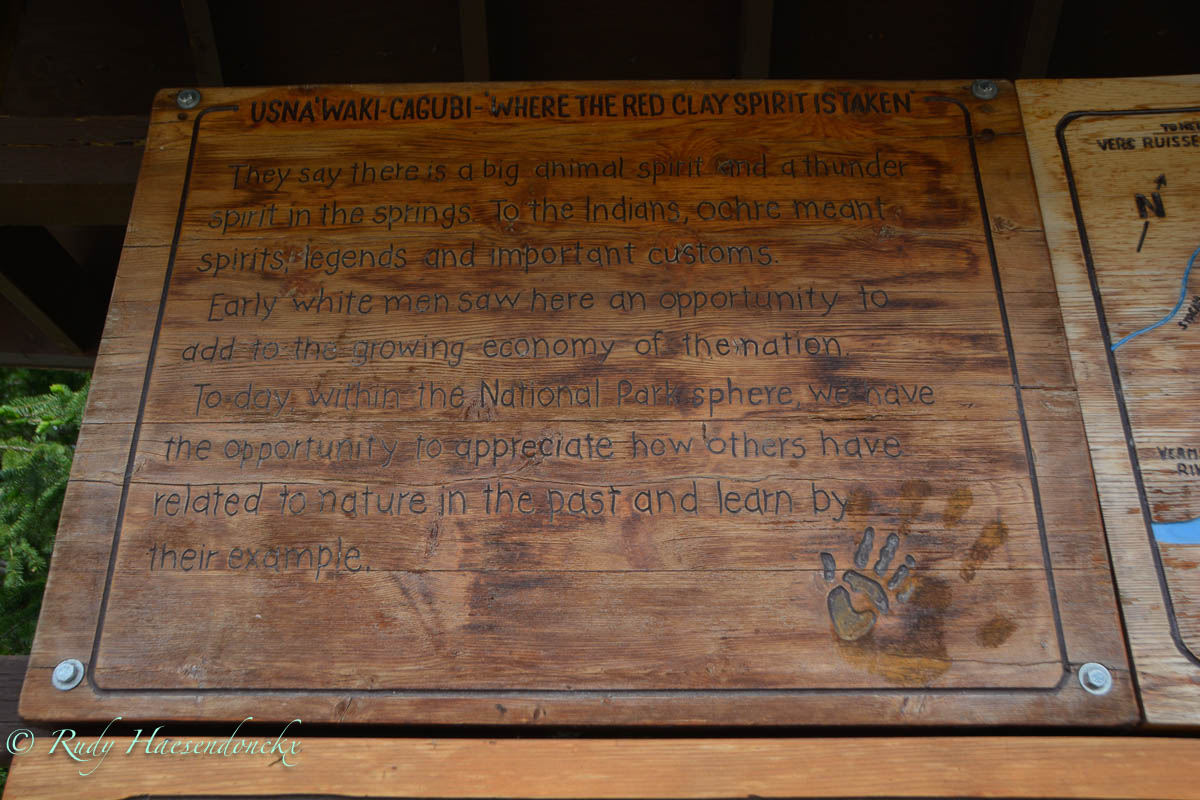 USNA'WAKI-CAGUBI-"WHERE THE RED CLAY SPIRIT IS TAKEN"
They say there is a big animal spirit and a thunder
spirit in the springs. To the Indians, ochre meant
spirits, legends and important customs.
Early white men saw here an opportunity to
add to the growing economy of the nation.
To-day, within the National Park sphere, we have
the opportunity to appreciate how others have
related to nature in the past and learn by
their example.
VERS
N
© Rudy Haesendonckx